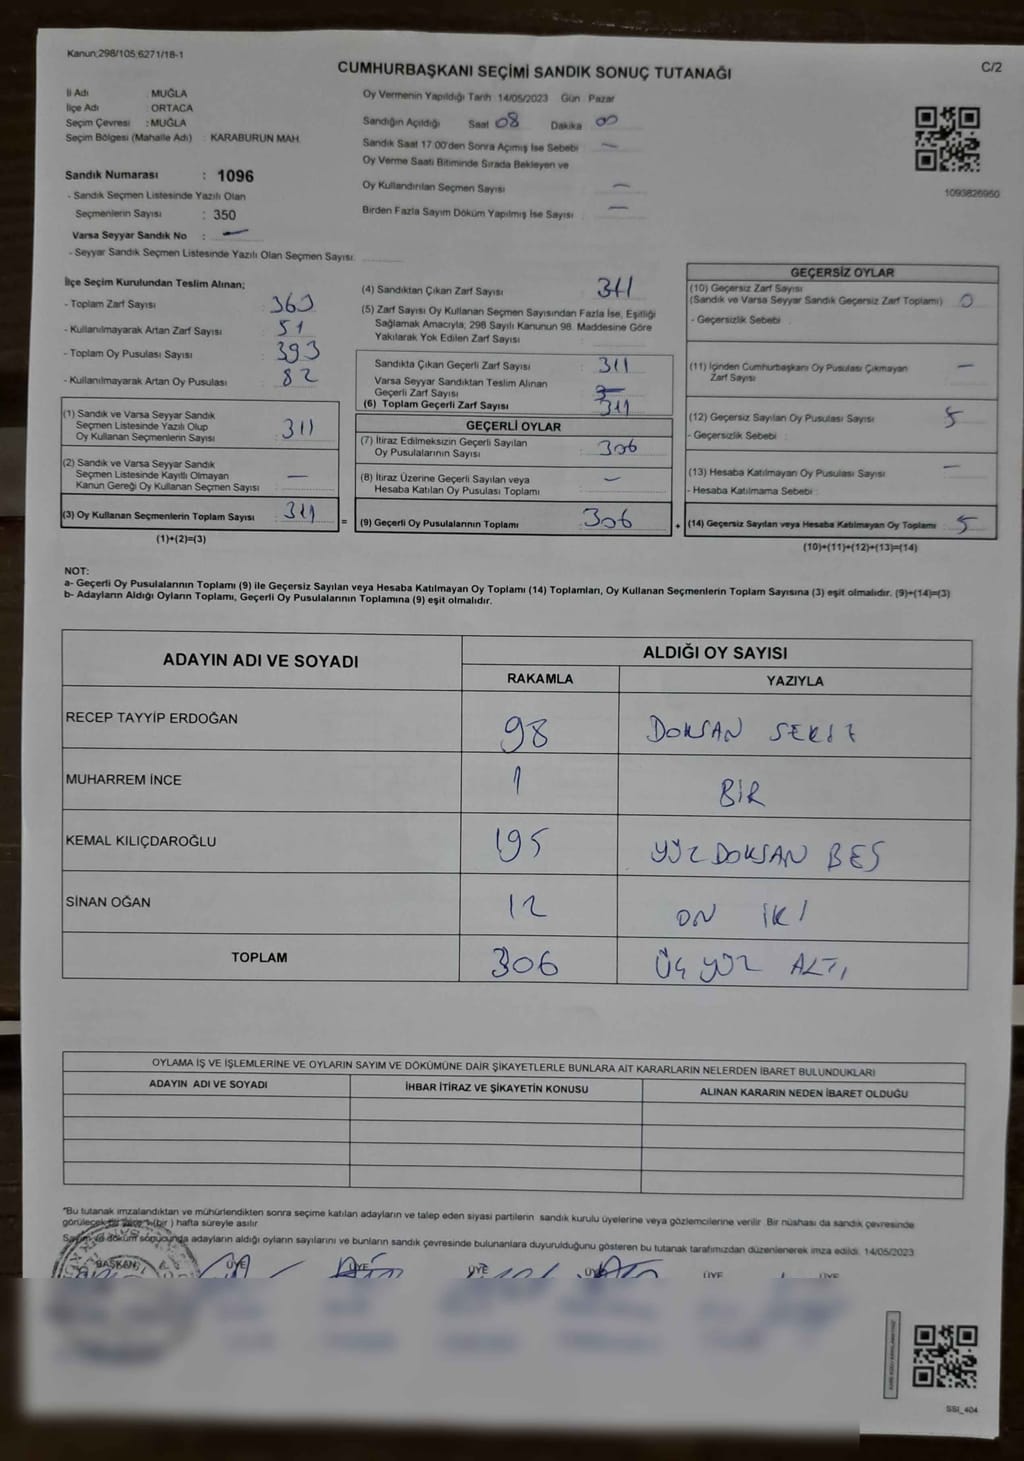 Kanun;298/105;6271/18-1
CUMHURBAŞKANI SEÇİMİ SANDIK SONUÇ TUTANAĞI
C/2
İl Adı : MUĞLA
İlçe Adı : ORTACA
Seçim Çevresi : MUĞLA
Seçim Bölgesi (Mahalle Adı) : KARABURUN MAH.
Sandık Numarası : 1096
- Sandık Seçmen Listesinde Yazılı Olan
Seçmenlerin Sayısı : 350
Varsa Seyyar Sandık No : —
- Seyyar Sandık Seçmen Listesinde Yazılı Olan Seçmen Sayısı:
Oy Vermenin Yapıldığı Tarih :14/05/2023 Gün : Pazar
Sandığın Açıldığı Saat 08 Dakika 00
Sandık Saat 17:00'den Sonra Açımış İse Sebebi : —
Oy Verme Saati Bitiminde Sırada Bekleyen ve
Oy Kullandırılan Seçmen Sayısı : —
Birden Fazla Sayım Döküm Yapılmış İse Sayısı : —
1093826960
İlçe Seçim Kurulundan Teslim Alınan;
- Toplam Zarf Sayısı : 363
- Kullanılmayarak Artan Zarf Sayısı : 51
- Toplam Oy Pusulası Sayısı : 393
- Kullanılmayarak Artan Oy Pusulası : 82
(1) Sandık ve Varsa Seyyar Sandık
Seçmen Listesinde Yazılı Olup
Oy Kullanan Seçmenlerin Sayısı : 311
(2) Sandık ve Varsa Seyyar Sandık
Seçmen Listesinde Kayıtlı Olmayan
Kanun Gereği Oy Kullanan Seçmen Sayısı : —
(3) Oy Kullanan Seçmenlerin Toplam Sayısı : 311
(1)+(2)=(3)
(4) Sandıktan Çıkan Zarf Sayısı : 311
(5) Zarf Sayısı Oy Kullanan Seçmen Sayısından Fazla İse, Eşitliği
Sağlamak Amacıyla; 298 Sayılı Kanunun 98. Maddesine Göre
Yakılarak Yok Edilen Zarf Sayısı :
Sandıkta Çıkan Geçerli Zarf Sayısı : 311
Varsa Seyyar Sandıktan Teslim Alınan
Geçerli Zarf Sayısı :
(6) Toplam Geçerli Zarf Sayısı : 311
GEÇERLİ OYLAR
(7) İtiraz Edilmeksizin Geçerli Sayılan
Oy Pusulalarının Sayısı : 306
(8) İtiraz Üzerine Geçerli Sayılan veya
Hesaba Katılan Oy Pusulası Toplamı : —
= (9) Geçerli Oy Pusulalarının Toplamı : 306
GEÇERSİZ OYLAR
(10) Geçersiz Zarf Sayısı
(Sandık ve Varsa Seyyar Sandık Geçersiz Zarf Toplamı) : 0
- Geçersizlik Sebebi :
(11) İçinden Cumhurbaşkanı Oy Pusulası Çıkmayan
Zarf Sayısı : —
(12) Geçersiz Sayılan Oy Pusulası Sayısı : 5
- Geçersizlik Sebebi :
(13) Hesaba Katılmayan Oy Pusulası Sayısı : —
- Hesaba Katılmama Sebebi :
+ (14) Geçersiz Sayılan veya Hesaba Katılmayan Oy Toplamı : 5
(10)+(11)+(12)+(13)=(14)
NOT:
a- Geçerli Oy Pusulalarının Toplamı (9) ile Geçersiz Sayılan veya Hesaba Katılmayan Oy Toplamı (14) Toplamları, Oy Kullanan Seçmenlerin Toplam Sayısına (3) eşit olmalıdır. (9)+(14)=(3)
b- Adayların Aldığı Oyların Toplamı, Geçerli Oy Pusulalarının Toplamına (9) eşit olmalıdır.
ADAYIN ADI VE SOYADI ALDIĞI OY SAYISI
RAKAMLA YAZIYLA
RECEP TAYYİP ERDOĞAN 98 DOKSAN SEKİZ
MUHARREM İNCE 1 BİR
KEMAL KILIÇDAROĞLU 195 YÜZ DOKSAN BEŞ
SİNAN OĞAN 12 ON İKİ
TOPLAM 306 ÜÇ YÜZ ALTI
OYLAMA İŞ VE İŞLEMLERİNE VE OYLARIN SAYIM VE DÖKÜMÜNE DAİR ŞİKAYETLERLE BUNLARA AİT KARARLARIN NELERDEN İBARET BULUNDUKLARI
ADAYIN ADI VE SOYADI İHBAR İTİRAZ VE ŞİKAYETİN KONUSU ALINAN KARARIN NEDEN İBARET OLDUĞU
"Bu tutanak imzalandıktan ve mühürlendikten sonra seçime katılan adayların ve talep eden siyasi partilerin sandık kurulu üyelerine veya gözlemcilerine verilir. Bir nüshası da sandık çevresinde
görülecek bir yere 1 (bir ) hafta süreyle asılır.
Sayım ve döküm sonucunda adayların aldığı oyların sayılarını ve bunların sandık çevresinde bulunanlara duyurulduğunu gösteren bu tutanak tarafımızdan düzenlenerek imza edildi. 14/05/2023
BAŞKAN ÜYE ÜYE ÜYE ÜYE ÜYE ÜYE
SSI_404